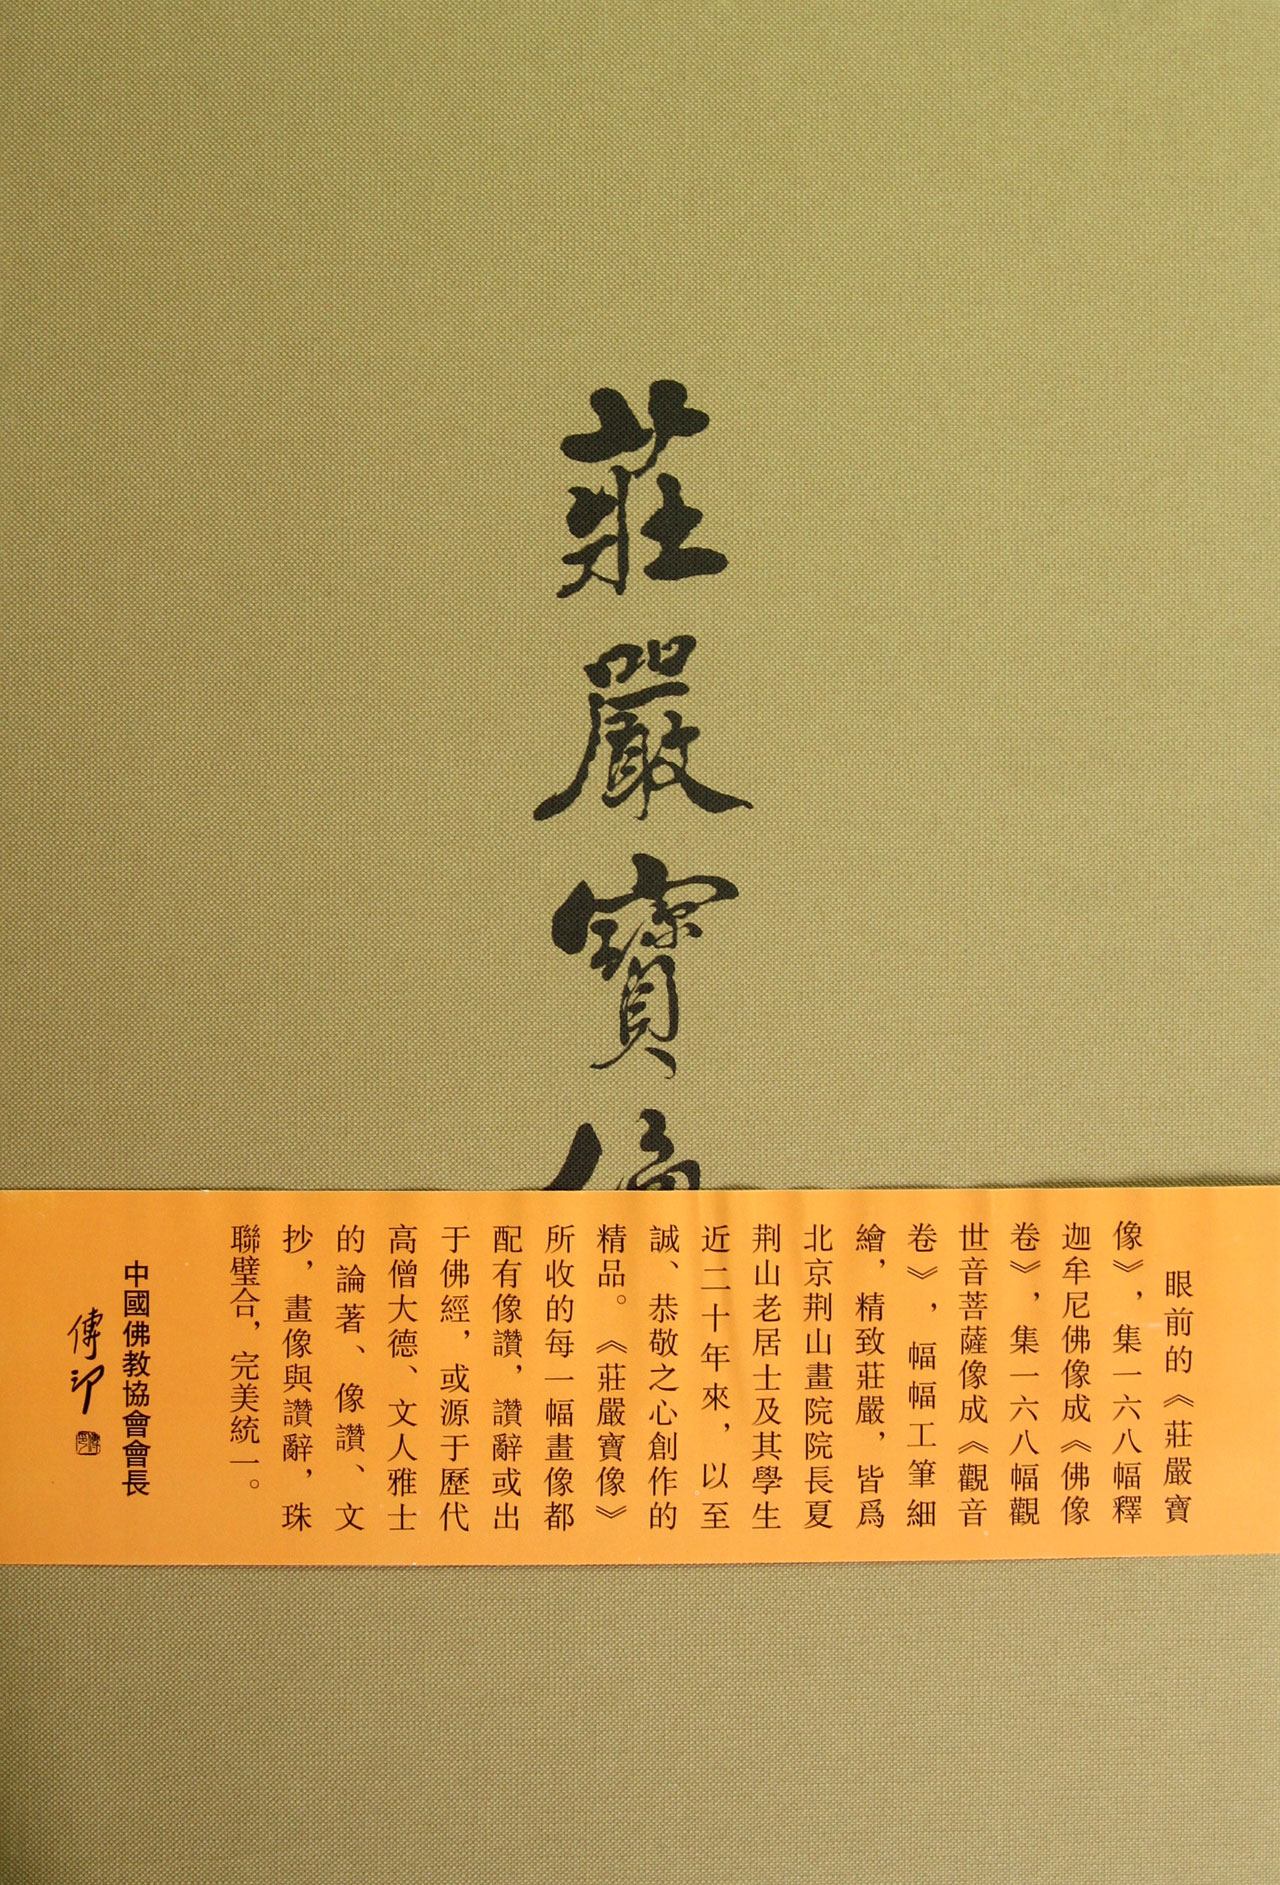 莊嚴寶像
眼前的《莊嚴寶
像》，集一六八幅釋
迦牟尼佛像成《佛像
卷》，集一六八幅觀
世音菩薩像成《觀音
卷》，幅幅工筆細
繪，精致莊嚴，皆爲
北京荆山畫院院長夏
荆山老居士及其學生
近二十年來，以至
誠、恭敬之心創作的
精品。《莊嚴寶像》
所收的每一幅畫像都
配有像讚，讚辭或出
于佛經，或源于歷代
高僧大德、文人雅士
的論著、像讚、文
抄，畫像與讚辭，珠
聯璧合，完美統一。
中國佛教協會會長
傳印